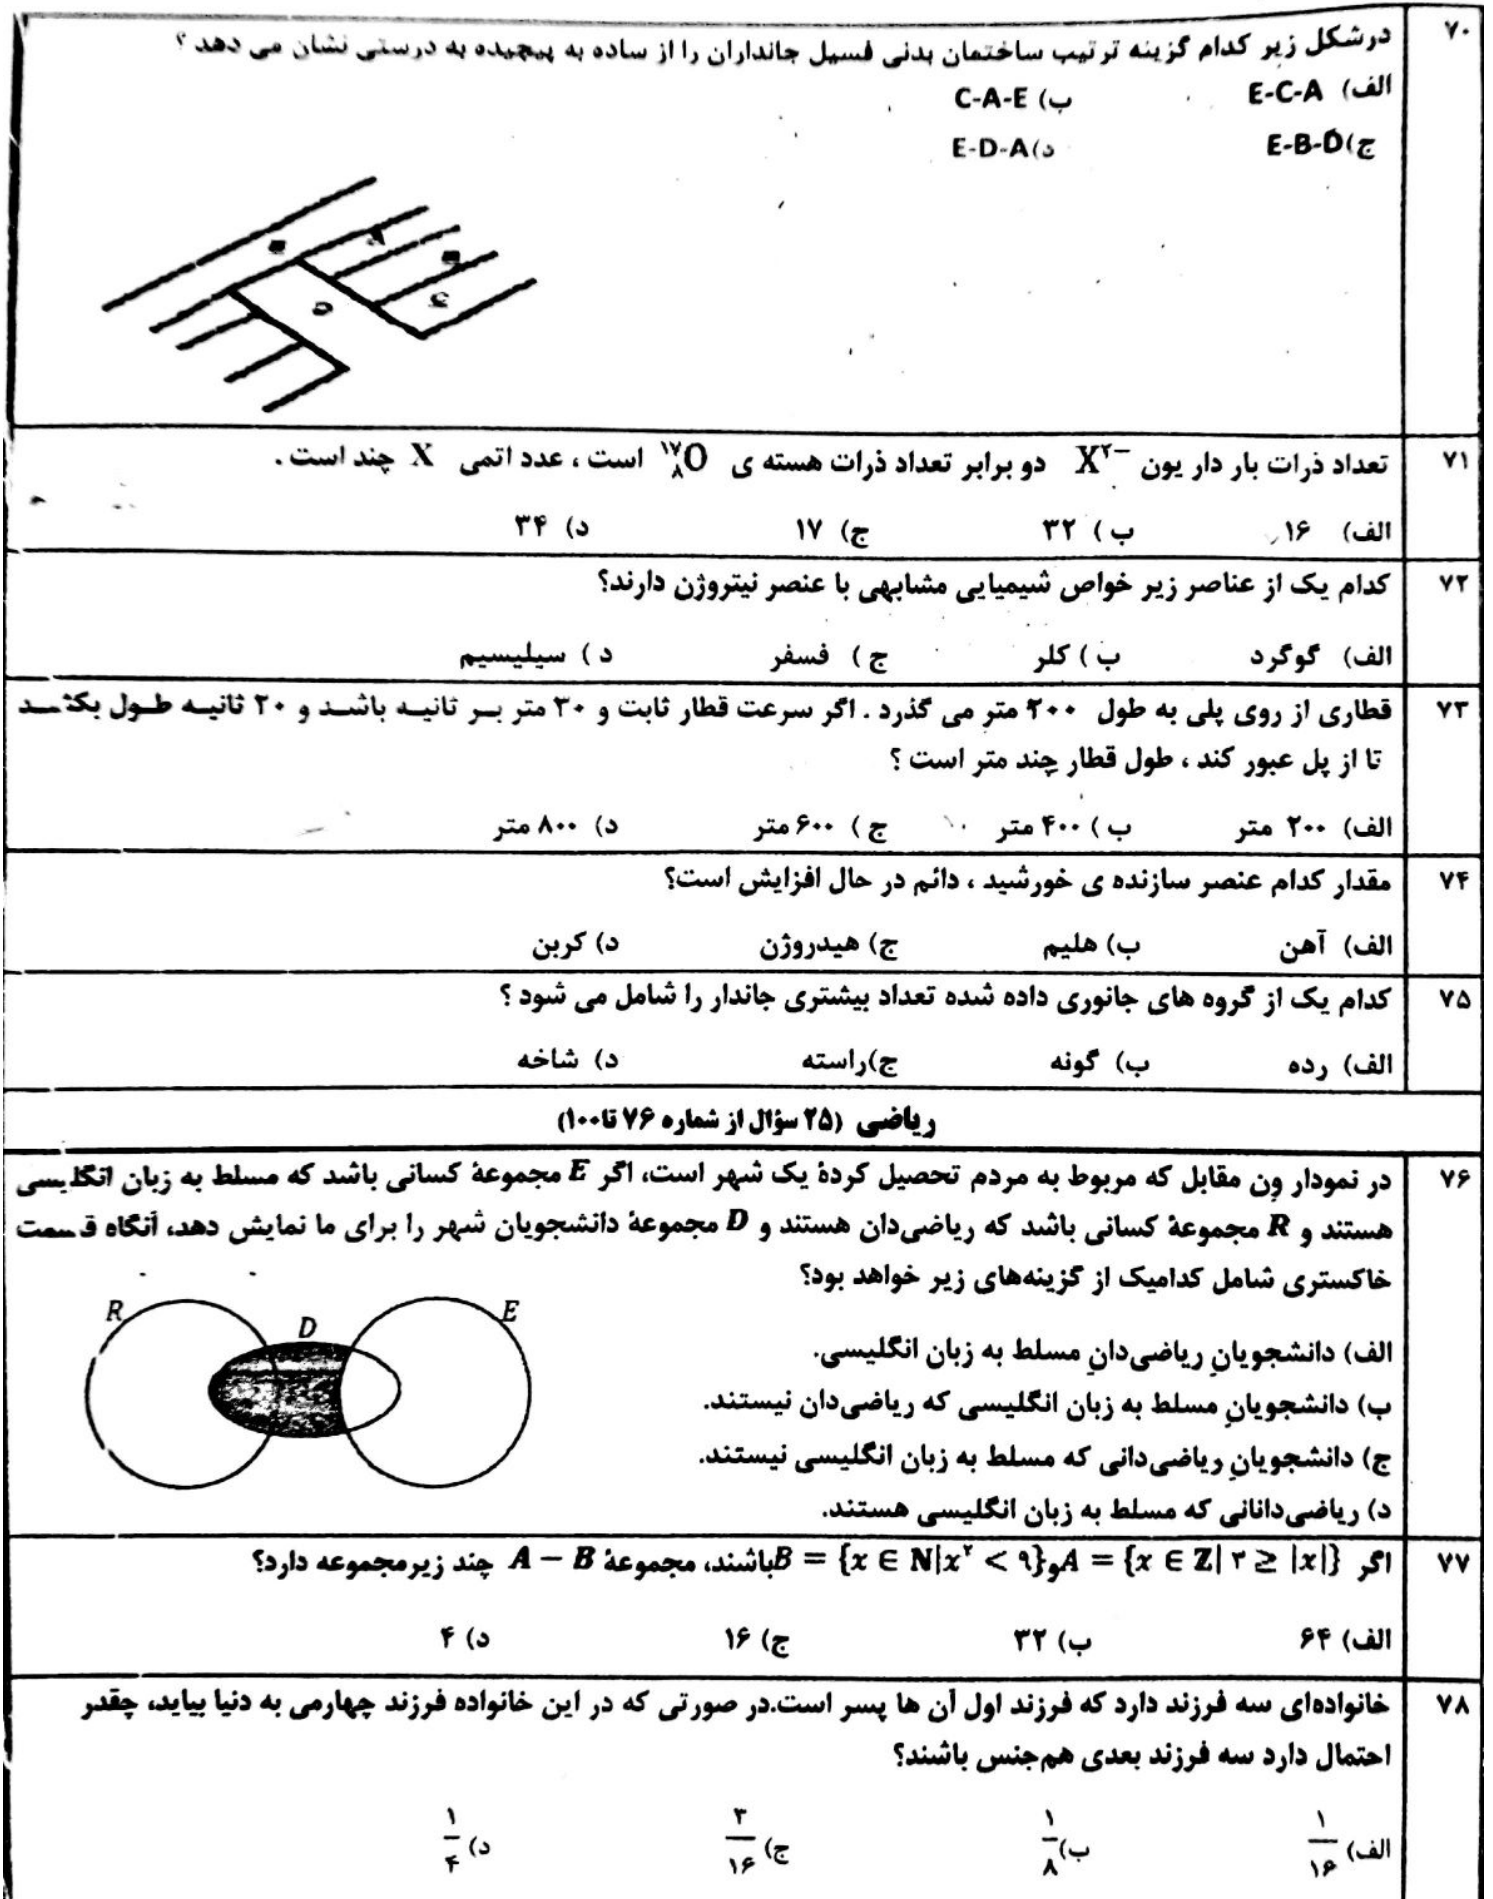 ۷۰
درشکل زیر کدام گزینه ترتیب ساختمان بدنی فسیل جانداران را از ساده به پیچیده به درستی نشان می دهد ؟
الف) E-C-A ب) C-A-E
ج)E-B-D د)E-D-A
A
B
C
۷۱
تعداد ذرات بار دار یون X²⁻ دو برابر تعداد ذرات هسته ی ¹⁷₈O است ، عدد اتمی X چند است .
الف) ۱۶ ب ) ۳۲ ج) ۱۷ د) ۳۴
۷۲
کدام یک از عناصر زیر خواص شیمیایی مشابهی با عنصر نیتروژن دارند؟
الف) گوگرد ب ) کلر ج ) فسفر د ) سیلیسیم
۷۳
قطاری از روی پلی به طول ۲۰۰ متر می گذرد . اگر سرعت قطار ثابت و ۳۰ متر بر ثانیه باشد و ۲۰ ثانیه طول بکشد
تا از پل عبور کند ، طول قطار چند متر است ؟
الف) ۲۰۰ متر ب ) ۴۰۰ متر ج ) ۶۰۰ متر د) ۸۰۰ متر
۷۴
مقدار کدام عنصر سازنده ی خورشید ، دائم در حال افزایش است؟
الف) آهن ب) هلیم ج) هیدروژن د) کربن
۷۵
کدام یک از گروه های جانوری داده شده تعداد بیشتری جاندار را شامل می شود ؟
الف) رده ب) گونه ج)راسته د) شاخه
ریاضی (۲۵ سؤال از شماره ۷۶ تا۱۰۰)
۷۶
در نمودار وِن مقابل که مربوط به مردم تحصیل کردهٔ یک شهر است، اگر E مجموعهٔ کسانی باشد که مسلط به زبان انگلیسی
هستند و R مجموعهٔ کسانی باشد که ریاضی‌دان هستند و D مجموعهٔ دانشجویان شهر را برای ما نمایش دهد، آنگاه قسمت
خاکستری شامل کدامیک از گزینه‌های زیر خواهد بود؟
R D E
الف) دانشجویانِ ریاضی‌دانِ مسلط به زبان انگلیسی.
ب) دانشجویانِ مسلط به زبان انگلیسی که ریاضی‌دان نیستند.
ج) دانشجویانِ ریاضی‌دانی که مسلط به زبان انگلیسی نیستند.
د) ریاضی‌دانانی که مسلط به زبان انگلیسی هستند.
۷۷
اگر A = {x ∈ Z| ۳ ≥ |x|} و B = {x ∈ N|x² < ۹} باشند، مجموعهٔ A − B چند زیرمجموعه دارد؟
الف) ۶۴ ب) ۳۲ ج) ۱۶ د) ۴
۷۸
خانواده‌ای سه فرزند دارد که فرزند اول آن ها پسر است.در صورتی که در این خانواده فرزند چهارمی به دنیا بیاید، چقدر
احتمال دارد سه فرزند بعدی هم‌جنس باشند؟
الف) ۱/۱۶ ب) ۱/۸ ج) ۳/۱۶ د) ۱/۴